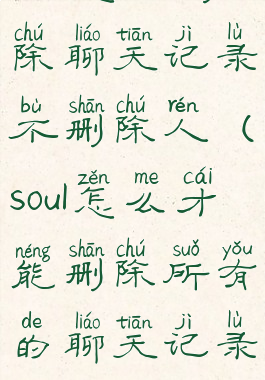 chú liáo tiān jì lù
除聊天记录
bù shān chú rén
不删除人 (
zěn me cái
soul怎么才
néng shān chú suǒ yǒu
能删除所有
de liáo tiān jì lù
的聊天记录